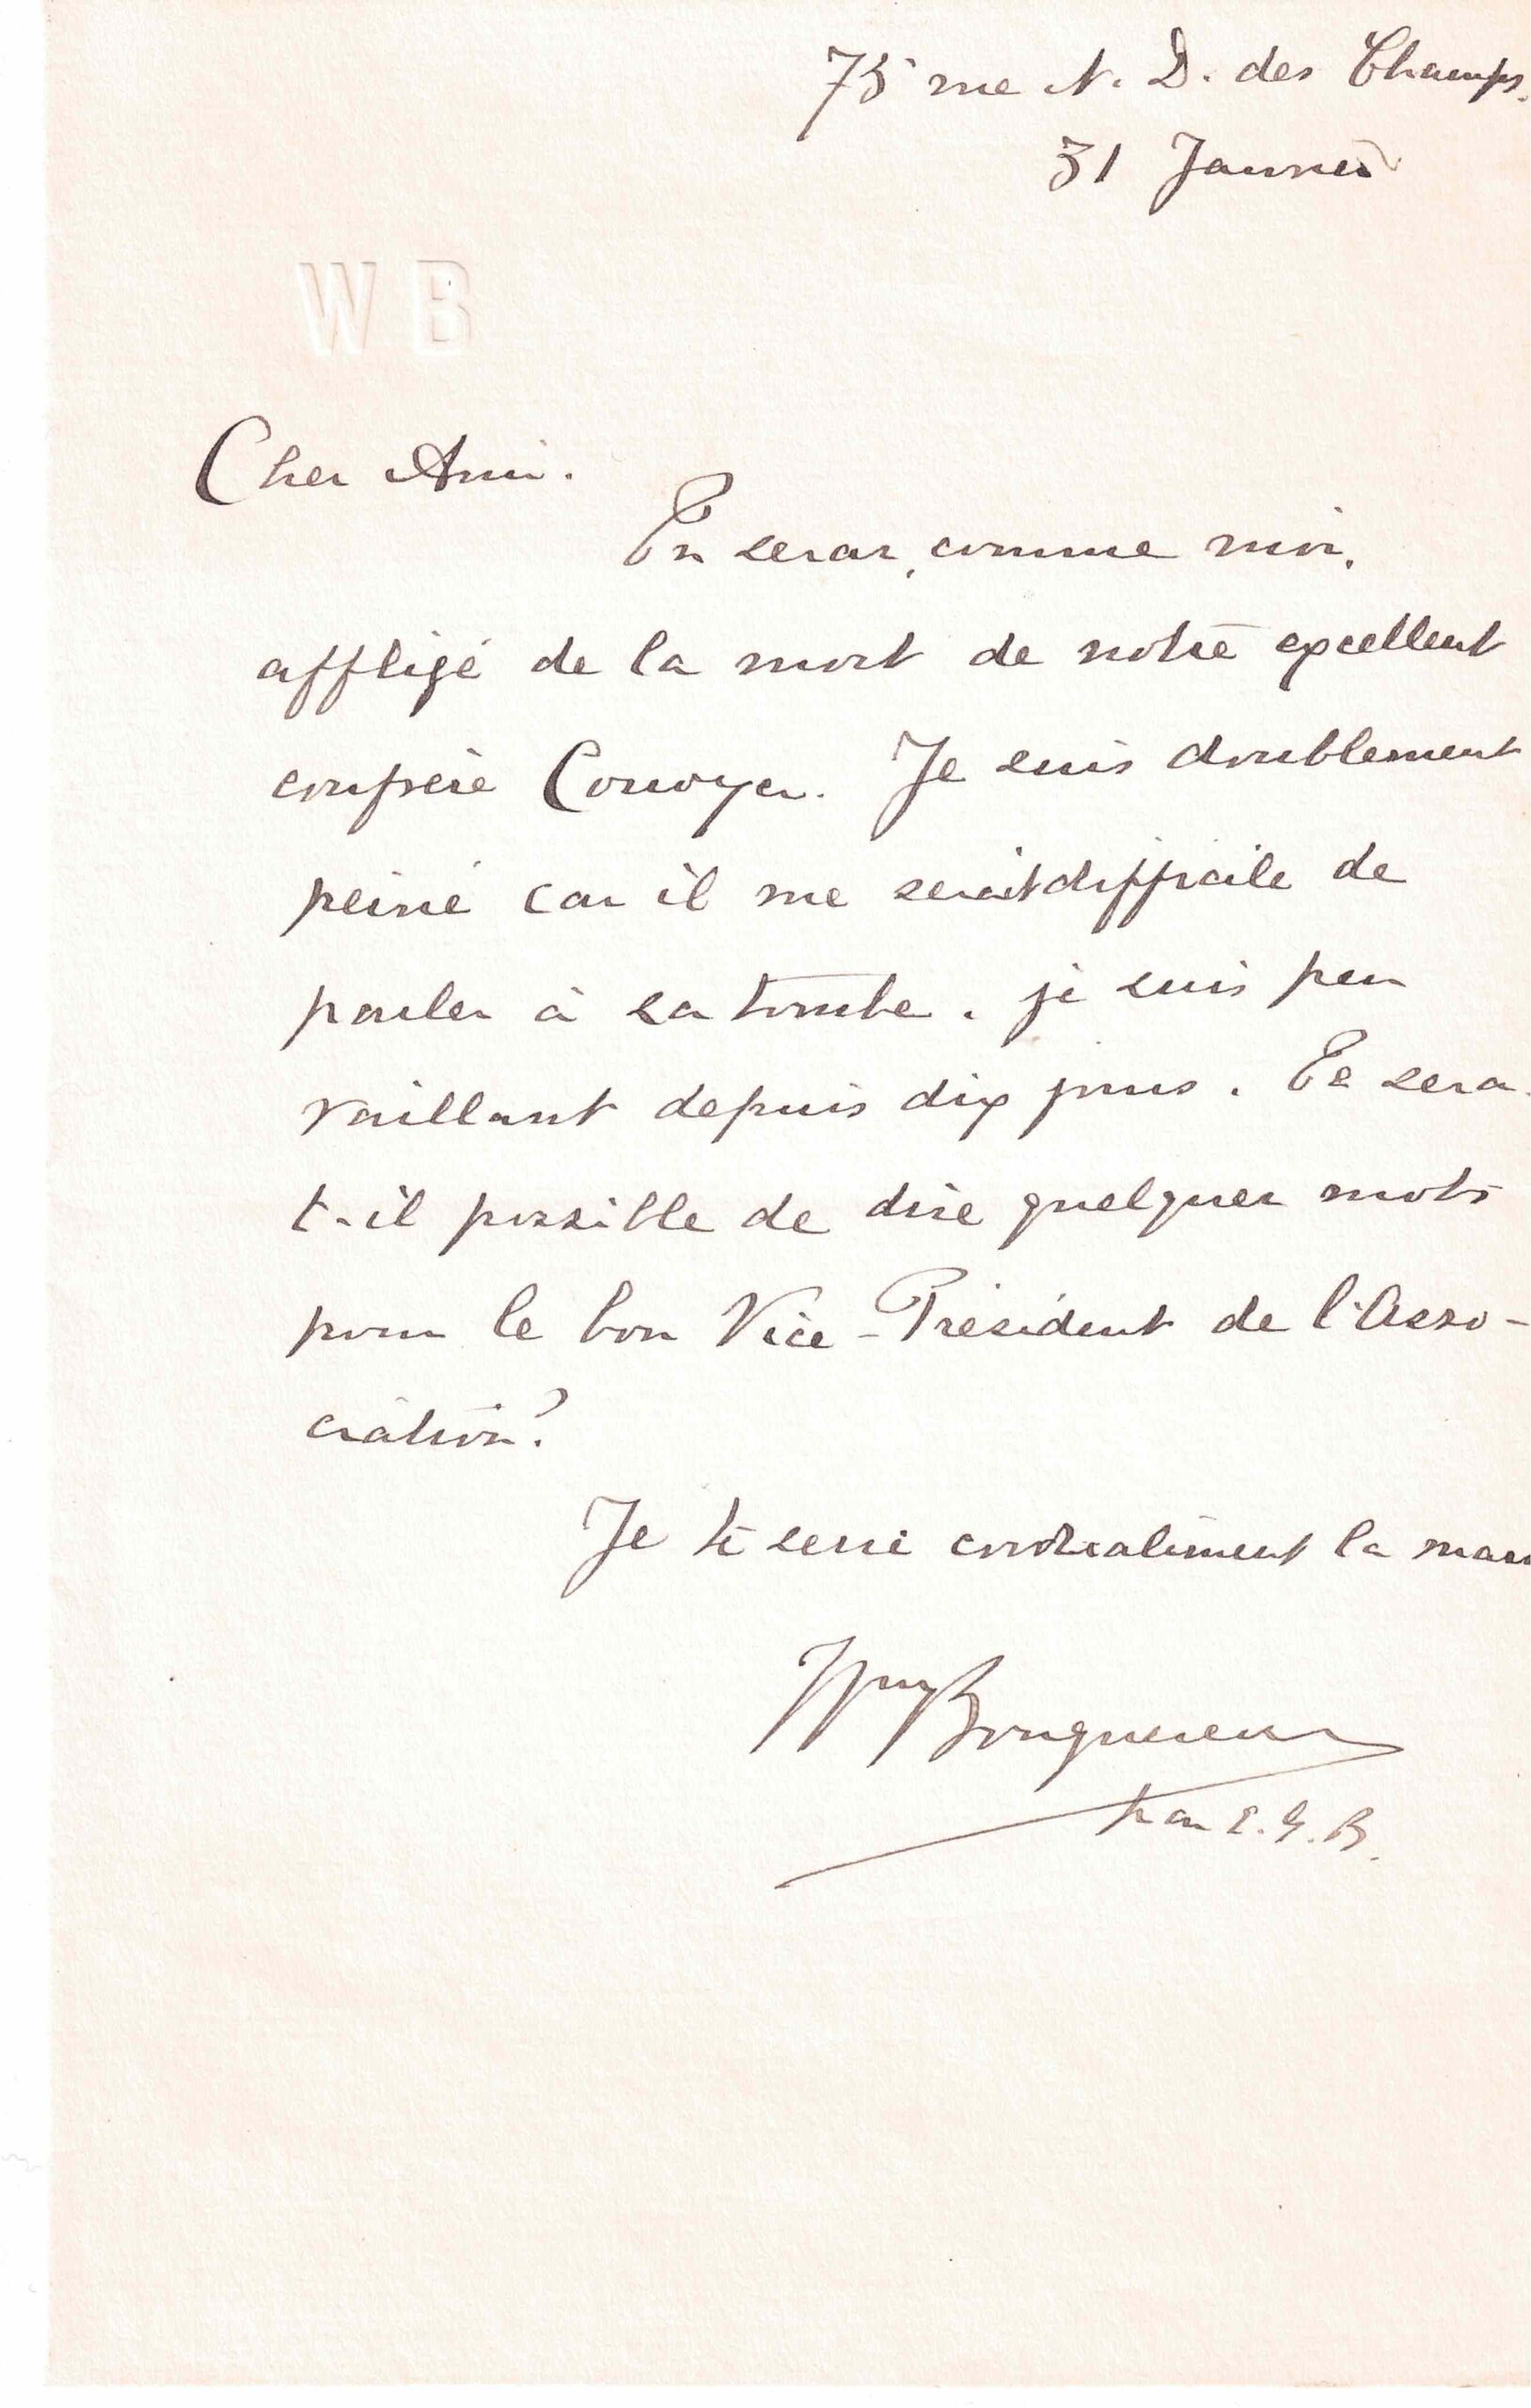 75 rue N. D. des Champs.
31 Janvier
W B
Cher Ami.
Tu seras, comme moi,
affligé de la mort de notre excellent
confrère Corroyer. Je suis doublement
peiné car il me serait difficile de
parler à sa tombe. je suis peu
vaillant depuis dix jours. Te sera-
t-il possible de dire quelques mots
pour le bon Vice-Président de l'Asso-
ciation?
Je te serre cordialement la main
Wm Bouguereau
par E. G. B.